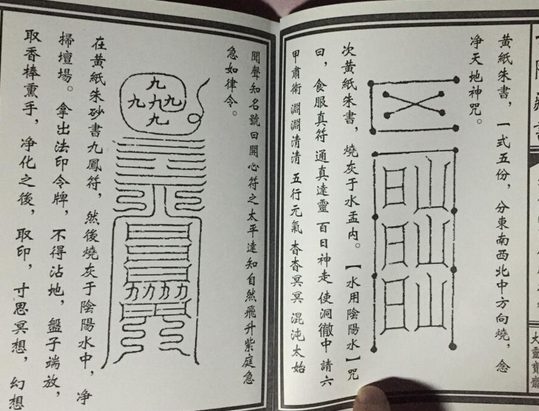 黃紙朱書，一式五份，分東南西北中方向燒，念
净天地神咒。
次黃紙朱書，燒灰于水盂内。【水用陰陽水】咒
曰，食服真符 通真達靈 百日神走 使洞徹中請六
甲肅衛 淵淵清清 五行元氣 杳杳冥冥 混沌太始
聞聲知名號曰開心符之太平達知自然飛升紫庭急
急如律令。
九
九九九
九
在黃紙朱砂書九鳳符，然後燒灰于陰陽水中，净
掃壇場。拿出法印令牌，不得沾地，盤子端放，
取香棒熏手，净化之後，取印，寸思冥想，幻想